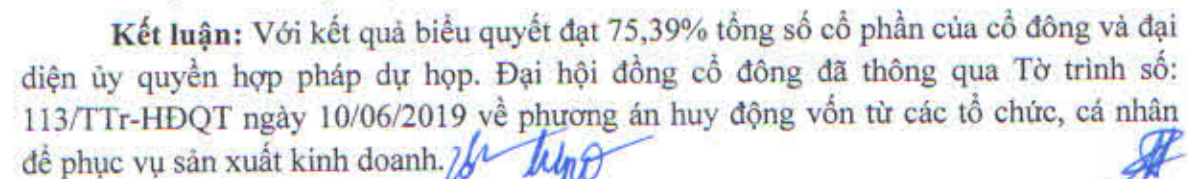 Kết luận: Với kết quả biểu quyết đạt 75,39% tổng số cổ phần của cổ đông và đại
diện ủy quyền hợp pháp dự họp. Đại hội đồng cổ đông đã thông qua Tờ trình số:
113/TTr-HĐQT ngày 10/06/2019 về phương án huy động vốn từ các tổ chức, cá nhân
để phục vụ sản xuất kinh doanh.